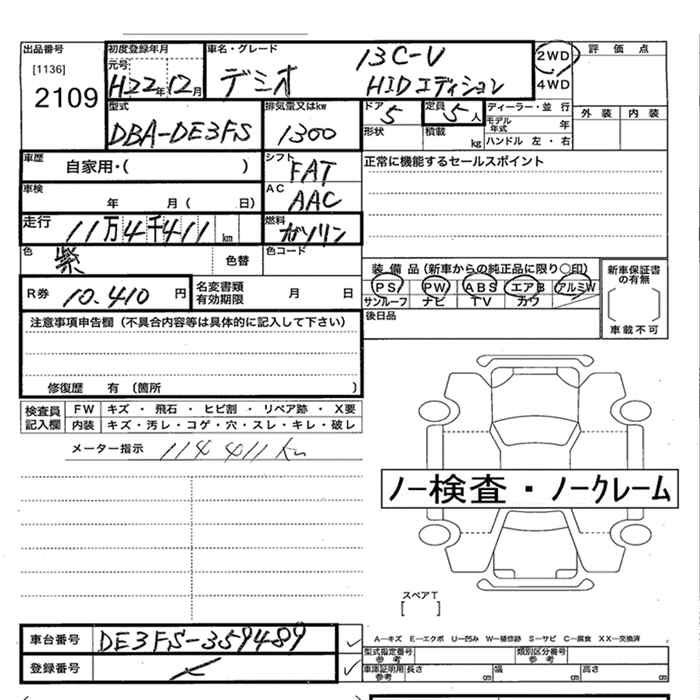 出品番号 初度登録年月 車名・グレード 13C-V 2WD 評価点
[1136] 元号 4WD
2109 H22年12月 デミオ HIDエディション
型式 排気量又はkw ドア 5 定員 5人 ディーラー・並行 外装 内装
DBA-DE3FS 1300 形状 積載 kg モデル年式 年
ハンドル 左・右
車歴 自家用・( ) シフト FAT 正常に機能するセールスポイント
車検 年 月( 日) AC AAC
走行 11万4千411km 燃料 ガソリン
色 紫 色替 色コード
装備品(新車からの純正品に限り○印) 新車保証書の有無
R券 10.410円 名変書類有効期限 月 日 PS PW ABS エアB アルミW
サンルーフ ナビ TV カワ 車載不可
注意事項申告欄(不具合内容等は具体的に記入して下さい) 後日品
修復歴 有(箇所 )
検査員記入欄 FW キズ・飛石・ヒビ割・リペア跡・X要
内装 キズ・汚レ・コゲ・穴・スレ・キレ・破レ
メーター指示 114411km
ノー検査・ノークレーム
スペアT
[ ]
車台番号 DE3FS-359489 A―キズ E―エクボ U―凹み W―補修跡 S―サビ C―腐食 XX―交換済
型式指定番号参考 類別区分番号参考
登録番号 車庫証明用参考 長さ cm 幅 cm 高さ cm